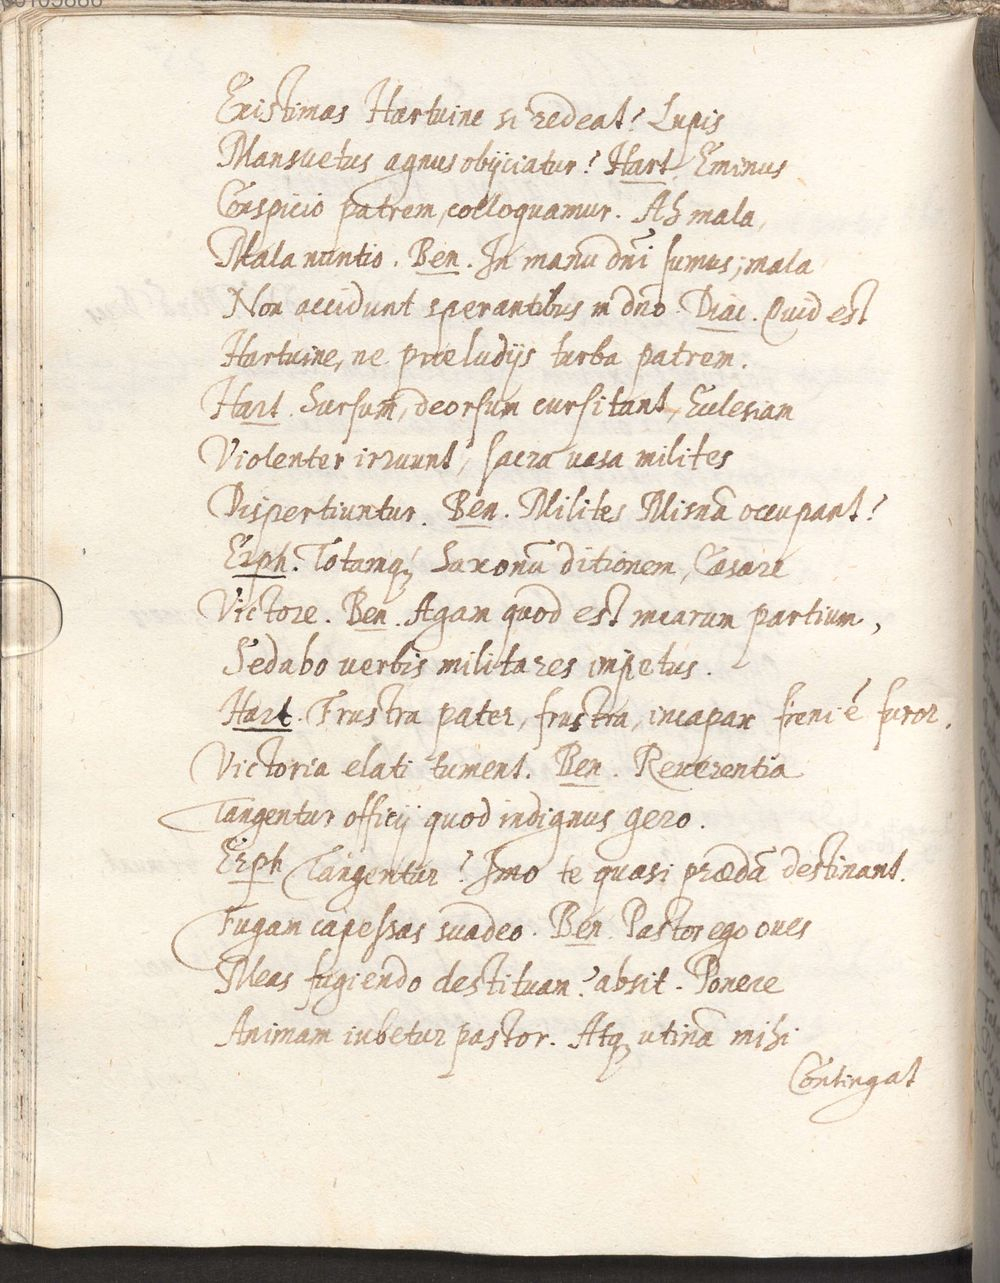 Existimas Hartuine si redeat? Lupis
Mansuetus agnus obijciatur? Hart. Eminus
Conspicio patrem, colloquamur. Ah mala,
Mala nuntio. Ben. In manu dnī sumus, mala
Non accidunt sperantibus in dno. Diac. Quid est
Hartuine, ne præludijs turba patrem.
Hart. Sursum, deorsum cursitant, Ecclesiam
Violenter irruunt, sacra uasa milites
Dispertiuntur. Ben. Milites Misnā occupant?
Erph. Totamq; Saxonū ditionem, Cæsare
Victore. Ben. Agam quod est mearum partium,
Sedabo uerbis militares impetus.
Hart. Frustra pater, frustra, incapax freni é furor.
Victoria elati tument. Ben. Reuerentia
Tangentur officij quod indignus gero.
Erph Tangentur? Imo te quasi prædā destinant.
Fugam capessas suadeo. Ben. Pastor ego oues
Meas fugiendo destituam? absit. Ponere
Animam iubetur pastor. Atq; utinā mihi
Contingat